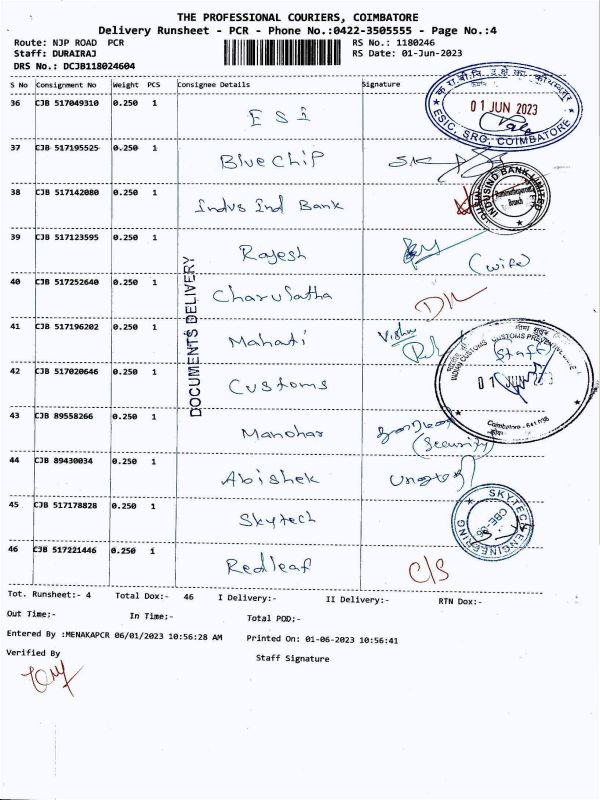 THE PROFESSIONAL COURIERS, COIMBATORE
Delivery Runsheet - PCR - Phone No.:0422-3505555 - Page No.:4
Route: NJP ROAD PCR
RS No.: 1180246
Staff: DURAIRAJ
RS Date: 01-Jun-2023
DRS No.: DCJB118024604
S No Consignment No Weight PCS Consignee Details Signature
36 CJB 517049310 0.250 1 ESI
01 JUN 2023
ESIC, SRO, COIMBATORE
37 CJB 517195525 0.250 1 Bluechip
38 CJB 517142080 0.250 1 Indus Ind Bank
INDUSIND BANK LIMITED
Branch
39 CJB 517123595 0.250 1 Rajesh
(wife)
40 CJB 517252640 0.250 1 Charulatha
DOCUMENTS DELIVERY
41 CJB 517196202 0.250 1 Mahati Vishu
(Staff)
INDIAN CUSTOMS
01 JUN 2023
Coimbatore - 641
42 CJB 517020646 0.250 1 Customs
43 CJB 89558266 0.250 1 Manohar
(Security)
44 CJB 89430034 0.250 1 Abishek
45 CJB 517178828 0.250 1 Skytech
SKYTECH ENGINEERING
CBE-06
46 CJB 517221446 0.250 1 Redleaf C/S
Tot. Runsheet:- 4 Total Dox:- 46 I Delivery:- II Delivery:- RTN Dox:-
Out Time:- In Time:- Total POD:-
Entered By :MENAKAPCR 06/01/2023 10:56:28 AM Printed On: 01-06-2023 10:56:41
Verified By Staff Signature